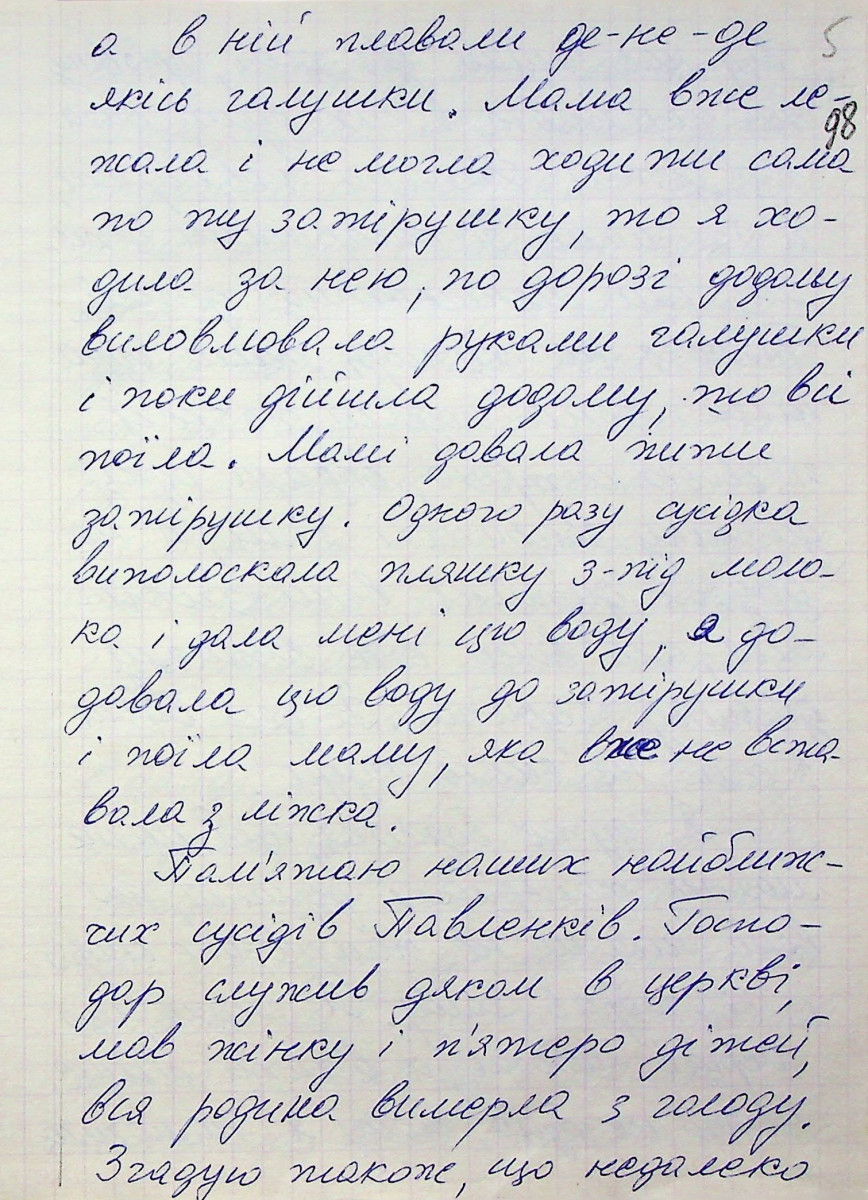 5
а в ній плавали де-не-де
якісь галушки. Мама вже ле-
98
жала і не могла ходити сама
по ту затірушку, то я хо-
дила за нею, по дорозі додому
виловлювала руками галушки
і поки дійшла додому, то всі
поїла. Мамі давала пити
затірушку. Одного разу сусідка
виполоскала пляшку з-під моло-
ка і дала мені цю воду, я до-
давала цю воду до затірушки
і поїла маму, яка вже не вста-
вала з ліжка.
Пам'ятаю наших найближ-
чих сусідів Павленків. Госпо-
дар служив дяком в церкві,
мав жінку і п'ятеро дітей,
вся родина вимерла з голоду.
Згадую також, що недалеко